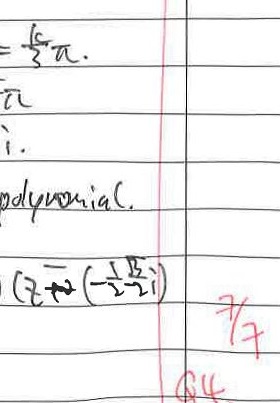 = k/3 π.
π
i.
polynomial.
(z - (-1/2 - √3/2 i)
7/7
Q4